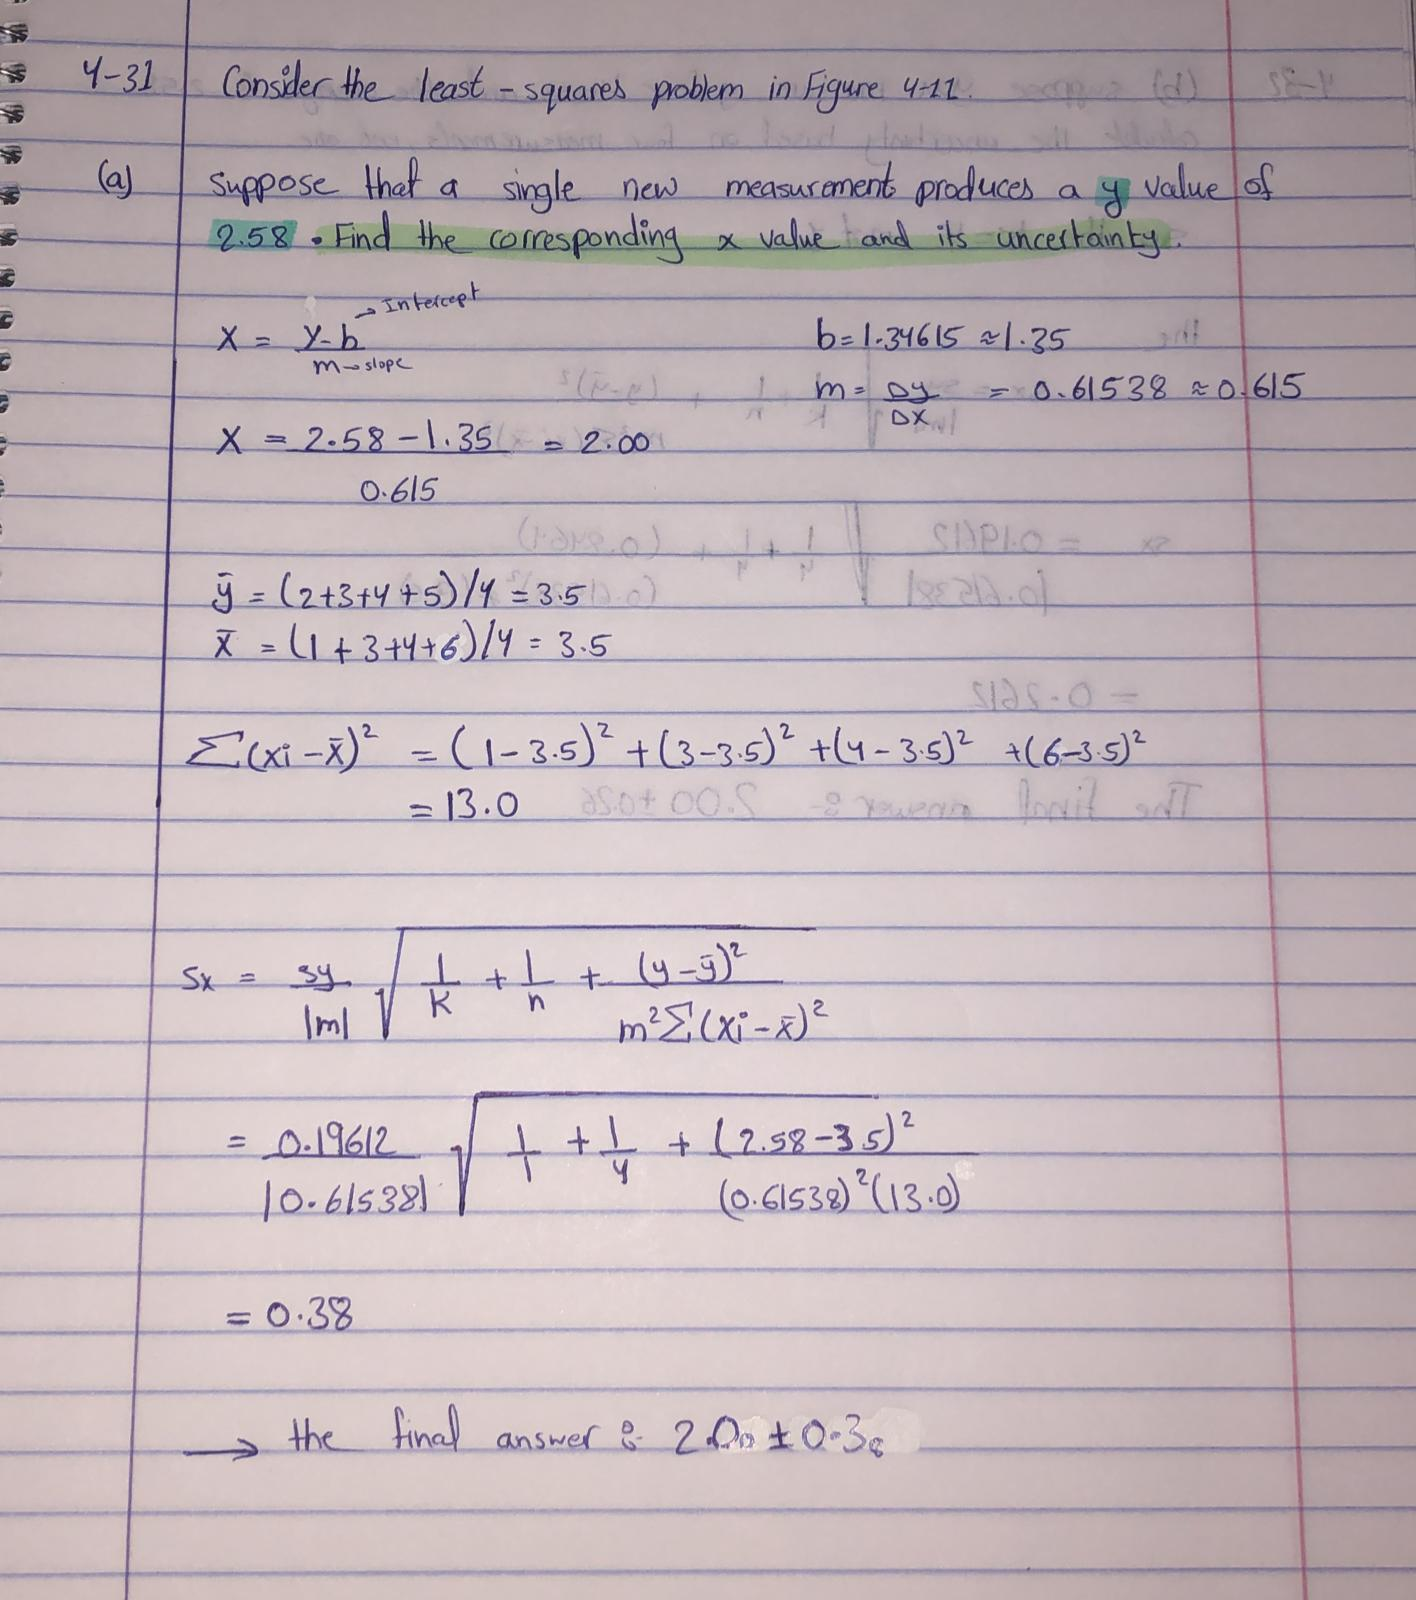 4-31 Consider the least-squares problem in Figure 4-11.
(a) Suppose that a single new measurement produces a y value of
2.58. Find the corresponding x value and its uncertainty.
x = y-b → Intercept / m → slope b = 1.34615 ≈ 1.35
m = Δy/Δx = 0.61538 ≈ 0.615
x = (2.58 - 1.35) / 0.615 = 2.00
ȳ = (2+3+4+5)/4 = 3.5
x̄ = (1+3+4+6)/4 = 3.5
Σ(xi - x̄)² = (1-3.5)² + (3-3.5)² + (4-3.5)² + (6-3.5)²
= 13.0
Sx = sy/|m| √(1/k + 1/n + (y-ȳ)²/(m²Σ(xi-x̄)²))
= 0.19612/|0.61538| √(1/1 + 1/4 + (2.58-3.5)²/((0.61538)²(13.0)))
= 0.38
→ the final answer : 2.00 ± 0.38